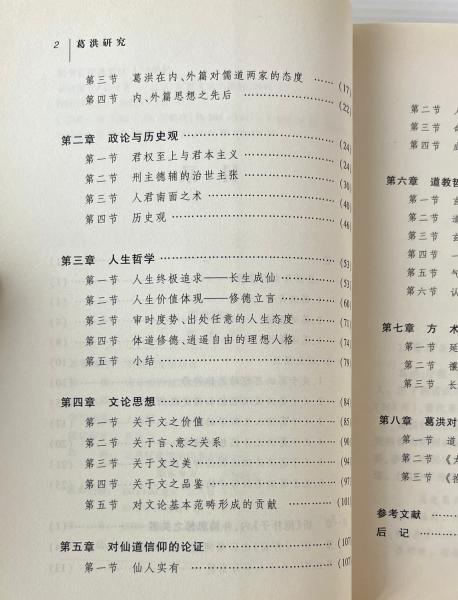 2 葛洪研究
第三节 葛洪在内、外篇对儒道两家的态度 ……(17)
第四节 内、外篇思想之先后 ……(22)
第二章 政论与历史观 ……(24)
第一节 君权至上与君本主义 ……(24)
第二节 刑主德辅的治世主张 ……(30)
第三节 人君南面之术 ……(40)
第四节 历史观 ……(46)
第三章 人生哲学 ……(53)
第一节 人生终极追求——长生成仙 ……(53)
第二节 人生价值体现——修德立言 ……(60)
第三节 审时度势、出处任意的人生态度 ……(71)
第四节 体道修德、逍遥自由的理想人格 ……(74)
第五节 小结 ……(79)
第四章 文论思想 ……(84)
第一节 关于文之价值 ……(85)
第二节 关于言、意之关系 ……(90)
第三节 关于文之美 ……(94)
第四节 关于文之品鉴 ……(97)
第五节 对文论基本范畴形成的贡献 ……(101)
第五章 对仙道信仰的论证 ……(107)
第一节 仙人实有 ……(107)
第二节
第三节
第四节
第六章 道教哲
第一节
第二节 道
第三节
第四节 一
第五节 气
第六节 认
第七章 方术
第一节 延
第二节
第三节 长
第八章 葛洪对
第一节 道
第二节
第三节
参考文献
后记